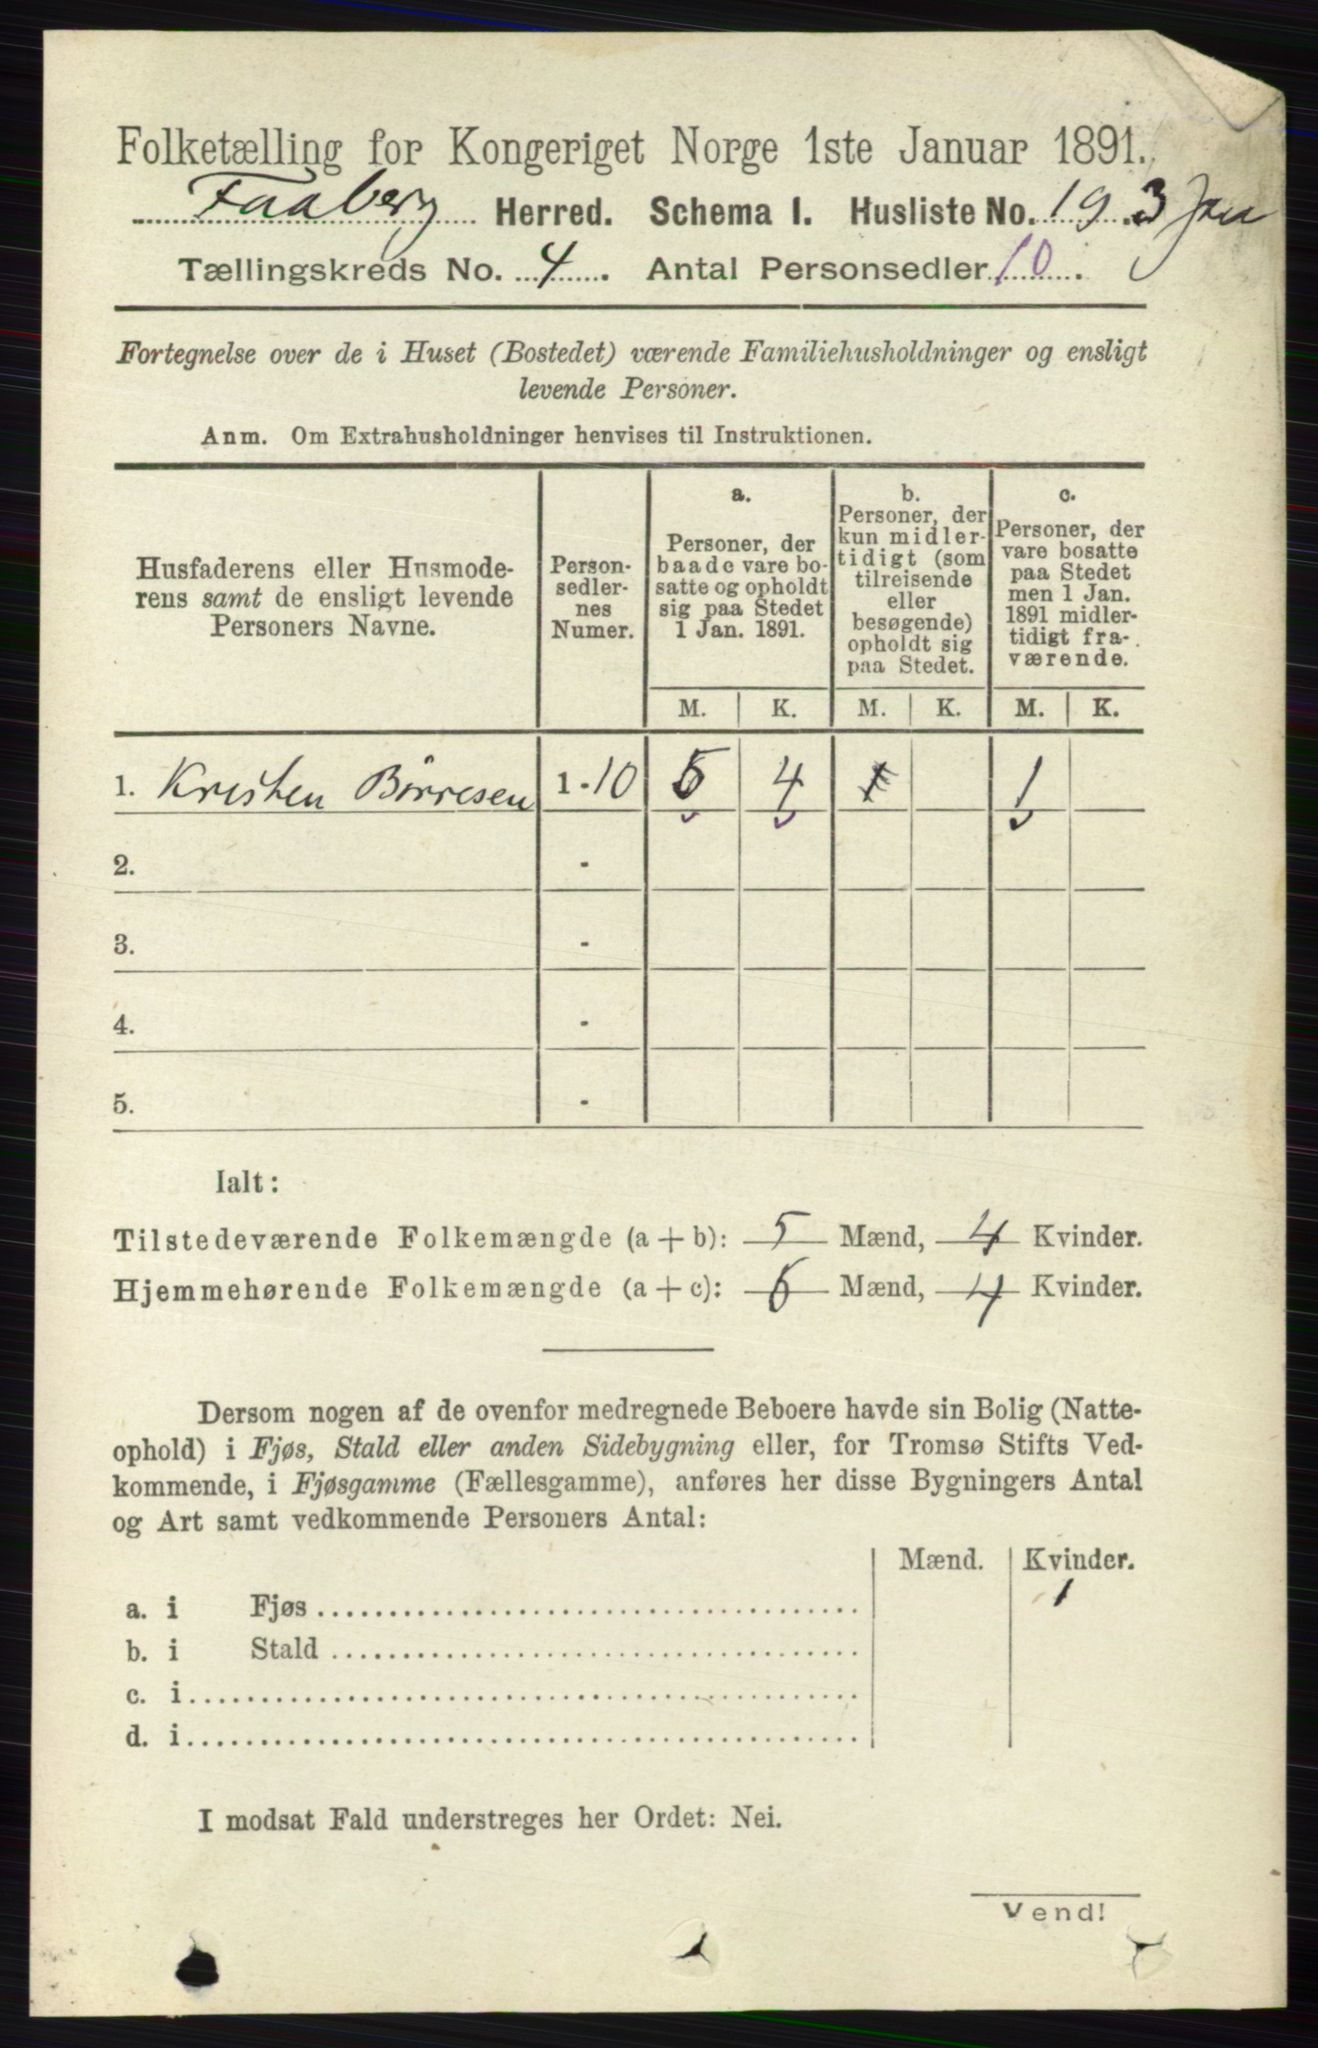 Folketælling for Kongeriget Norge 1ste Januar 1891.
Faaberg Herred. Schema I. Husliste No. 19. 3 Jan
Tællingskreds No. 4. Antal Personsedler 10.
Fortegnelse over de i Huset (Bostedet) værende Familiehusholdninger og ensligt
levende Personer.
Anm. Om Extrahusholdninger henvises til Instruktionen.
Husfaderens eller Husmode-
rens samt de ensligt levende
Personers Navne.
Person-
sedler-
nes
Numer.
a.
Personer, der
baade vare bo-
satte og opholdt
sig paa Stedet
1 Jan. 1891.
b.
Personer, der
kun midler-
tidigt (som
tilreisende
eller
besøgende)
opholdt sig
paa Stedet.
c.
Personer, der
vare bosatte
paa Stedet
men 1 Jan.
1891 midler-
tidigt fra-
værende.
M. K. M. K. M. K.
1. Kristen Börresen 1-10 5 4 1 1
2. -
3. -
4. -
5. -
Ialt:
Tilstedeværende Folkemængde (a + b): 5 Mænd, 4 Kvinder.
Hjemmehørende Folkemængde (a + c): 6 Mænd, 4 Kvinder.
Dersom nogen af de ovenfor medregnede Beboere havde sin Bolig (Natte-
ophold) i Fjøs, Stald eller anden Sidebygning eller, for Tromsø Stifts Ved-
kommende, i Fjøsgamme (Fællesgamme), anføres her disse Bygningers Antal
og Art samt vedkommende Personers Antal:
Mænd. Kvinder.
a. i Fjøs 1
b. i Stald
c. i
d. i
I modsat Fald understreges her Ordet: Nei.
Vend!